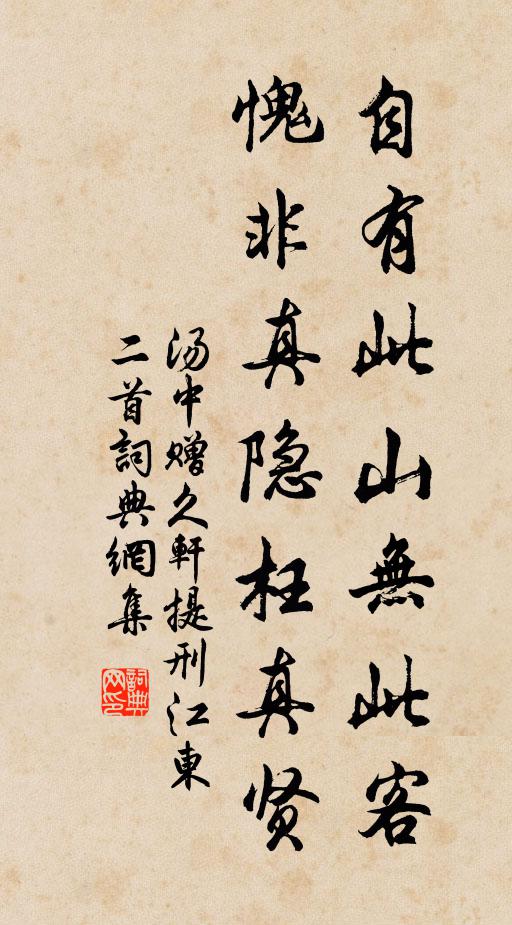 自有此山無此客
愧非真隐枉真贤
汤中赠久軒提刑江東
二首詞典網集
詞典网印